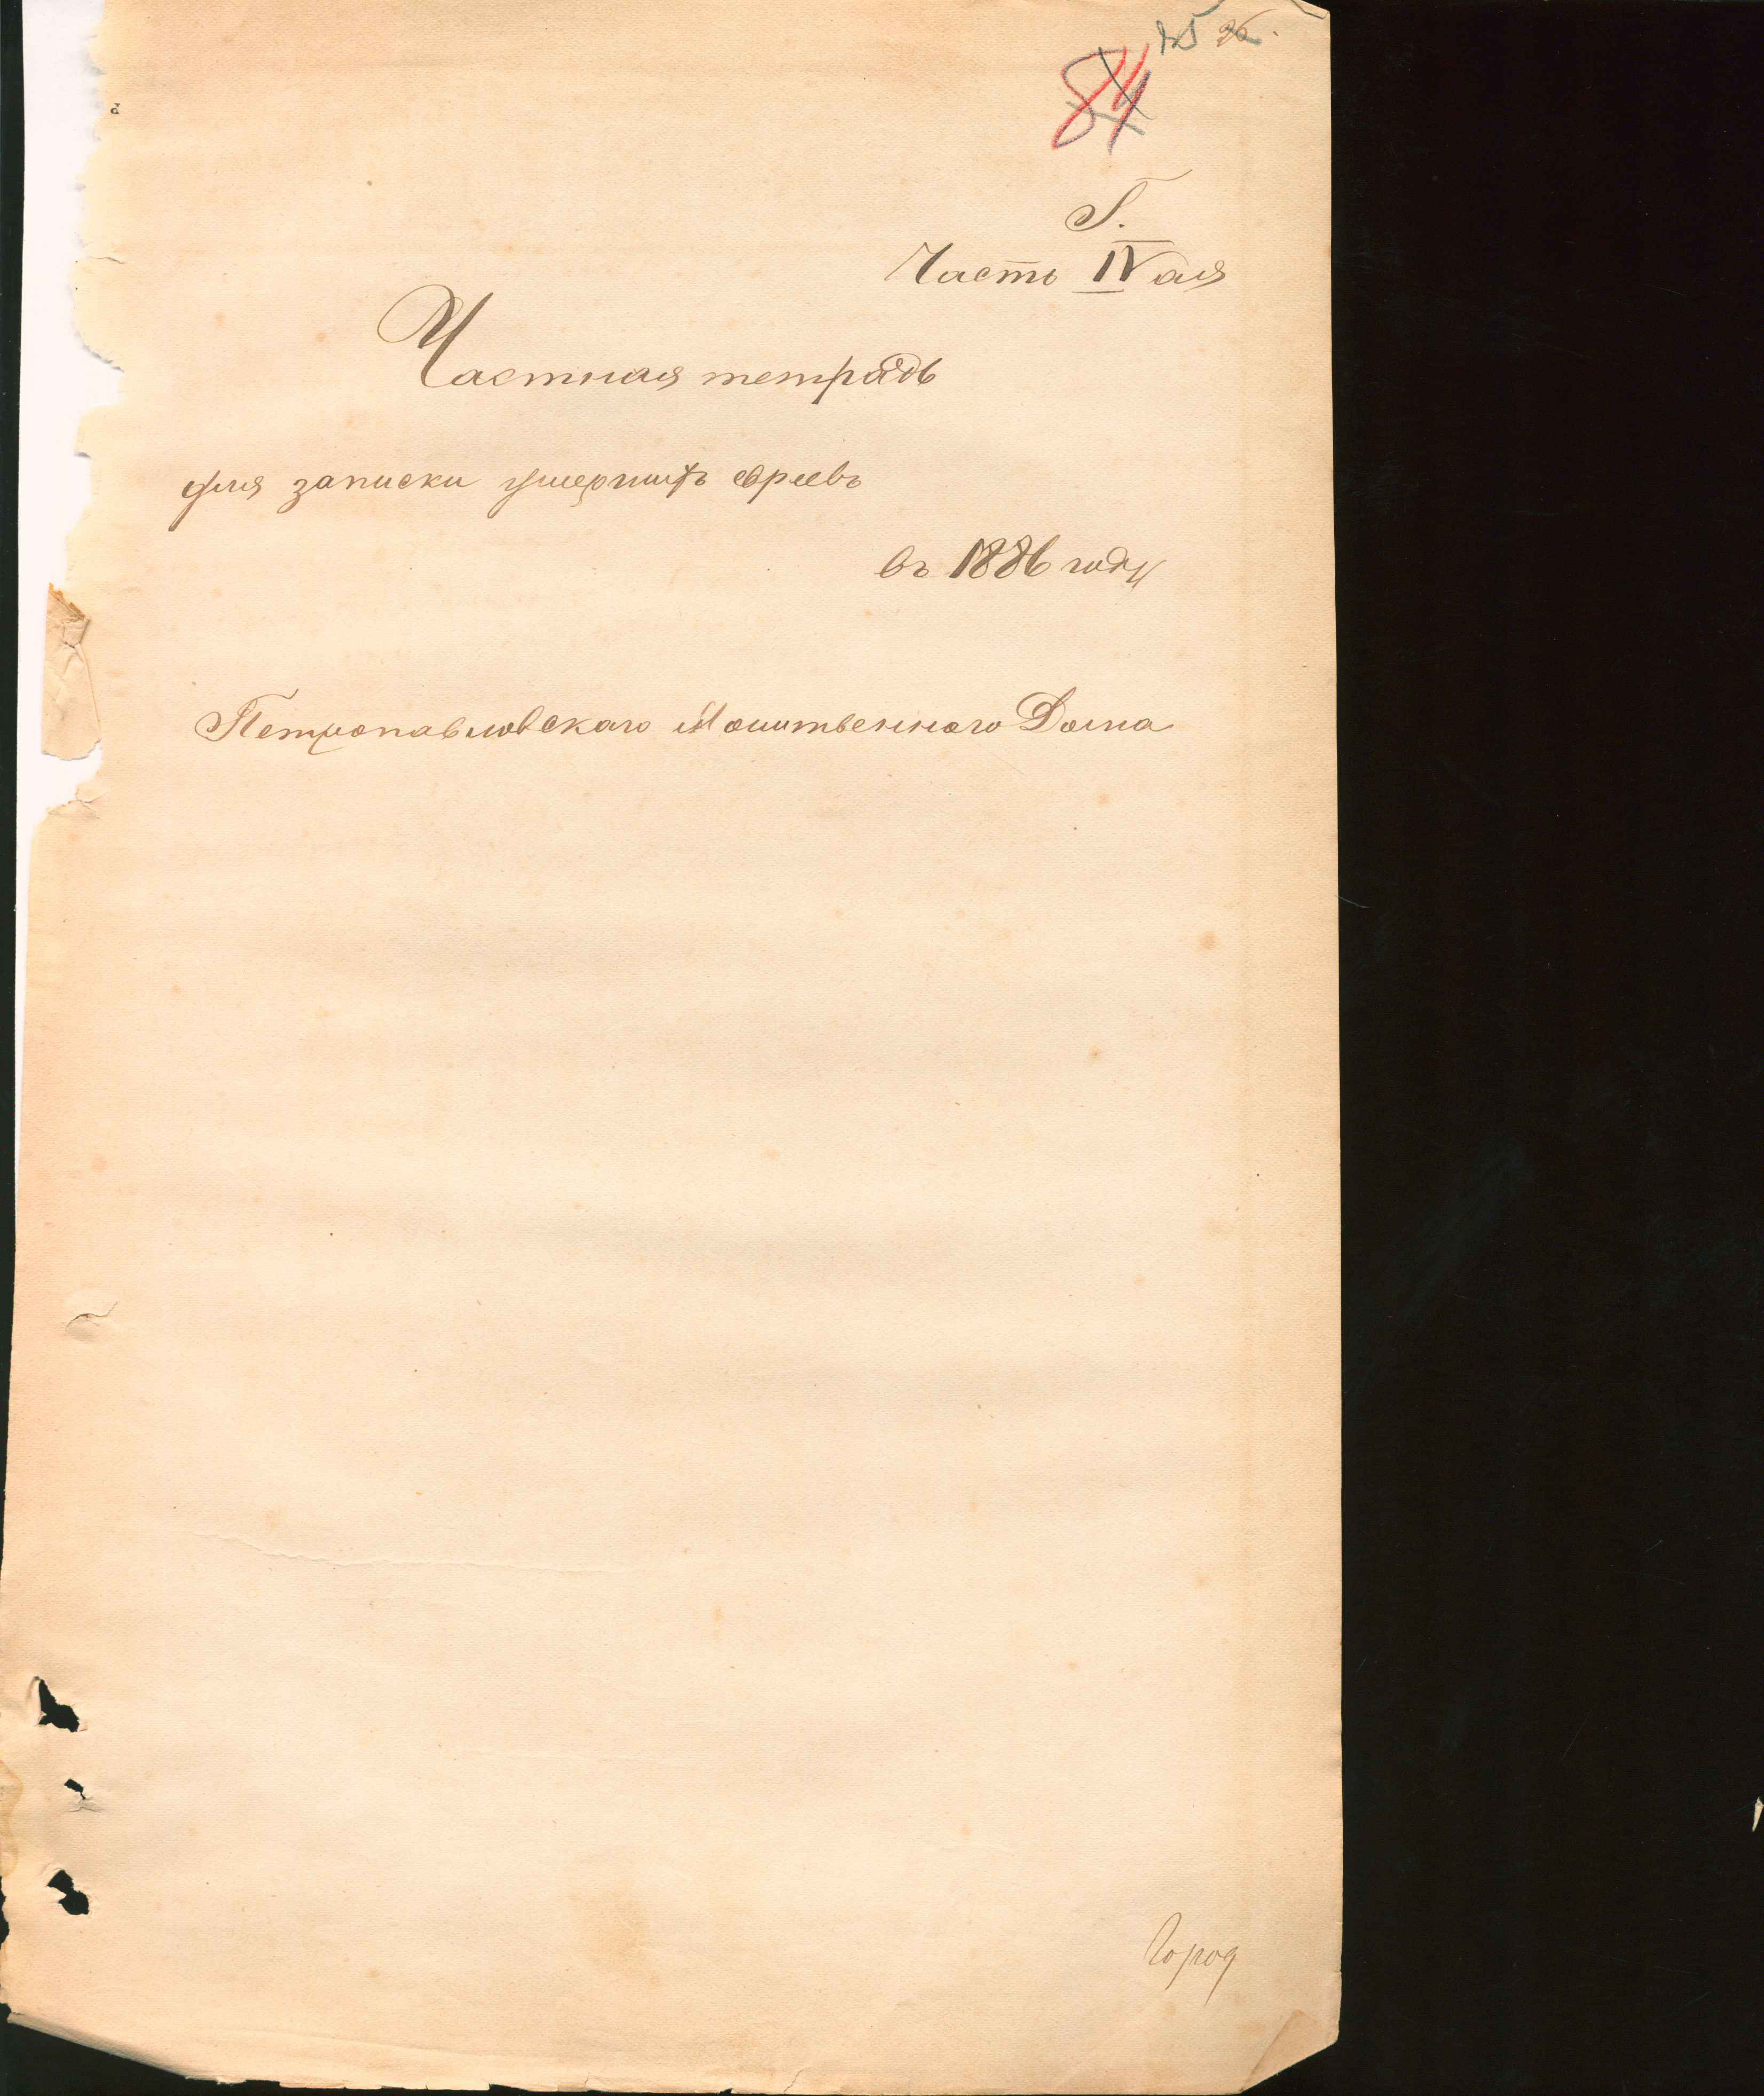 84
Г.
Часть IV ая
Частная тетрадь
для записки умершихъ евреевъ
въ 1886 году
Петропавловскаго Молитвенного Дома
Город